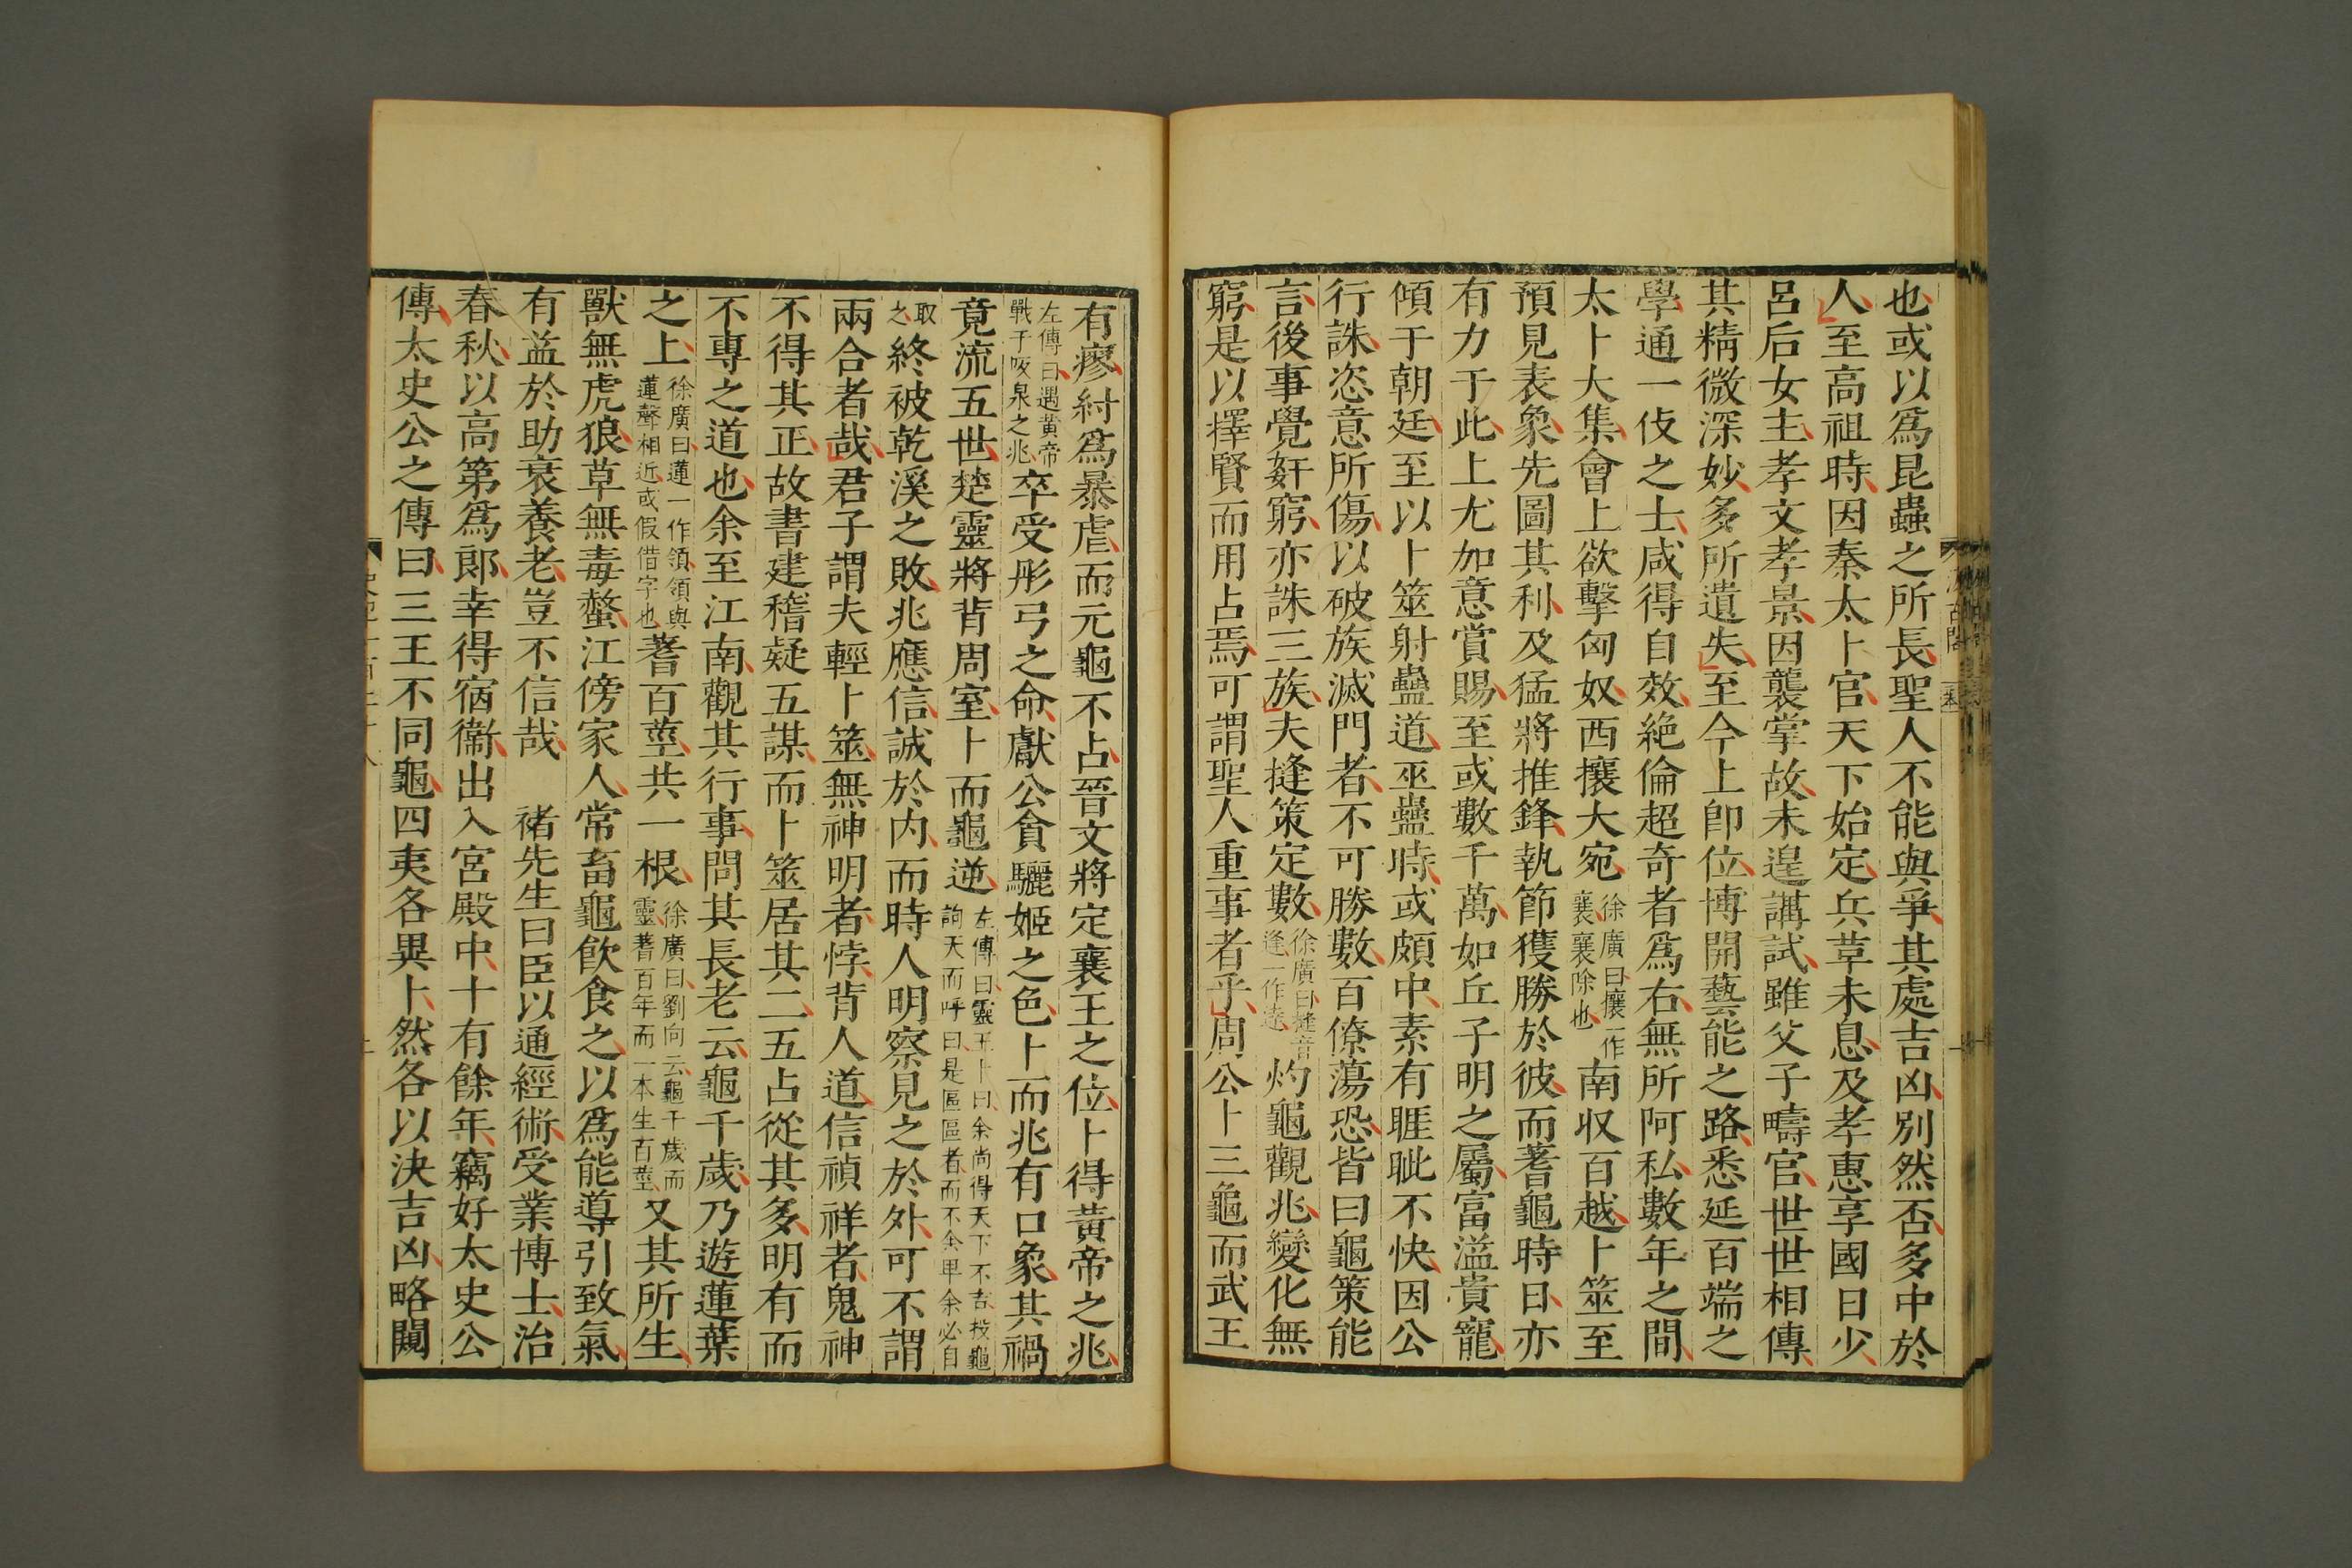 也或以爲昆蟲之所長聖人不能與爭其處吉凶別然否多中於
人至高祖時因秦太卜官天下始定兵革未息及孝惠享國日少
呂后女主孝文孝景因襲掌故未遑講試雖父子疇官世世相傳
其精微深妙多所遺失至今上卽位博開藝能之路悉延百端之
學通一伎之士咸得自效絶倫超奇者爲右無所阿私數年之間
太卜大集會上欲擊匈奴西攘大宛徐廣曰攘一作襄襄除也南収百越卜筮至
預見表象先圖其利及猛將推鋒執節獲勝於彼而蓍龜時日亦
有力于此上尤加意賞賜至或數千萬如丘子明之屬富溢貴寵
傾于朝廷至以卜筮射蠱道巫蠱時或頗中素有睚眦不快因公
行誅恣意所傷以破族滅門者不可勝數百僚蕩恐皆曰龜策能
言後事覺姧窮亦誅三族夫摓策定數徐廣曰摓音逢一作達灼龜觀兆變化無
窮是以擇賢而用占焉可謂聖人重事者乎周公卜三龜而武王
有瘳紂爲暴虐而元龜不占晉文將定襄王之位卜得黃帝之兆
左傳曰遇黃帝戰于阪泉之兆卒受彤弓之命獻公貪驪姬之色卜而兆有口象其禍
竟流五世楚靈將背周室卜而龜逆左傳曰靈王卜曰余尚得天下不吉投龜詢天而呼曰是區區者而不余畀余必自
取之終被乾溪之敗兆應信誠於内而時人明察見之於外可不謂
兩合者哉君子謂夫輕卜筮無神明者悖背人道信禎祥者鬼神
不得其正故書建稽疑五謀而卜筮居其二五占從其多明有而
不專之道也余至江南觀其行事問其長老云龜千歲乃遊蓮葉
之上徐廣曰蓮一作領領與蓮聲相近或假借字也蓍百莖共一根徐廣曰劉向云龜千歲而靈蓍百年而一本生百莖又其所生
獸無虎狼草無毒螫江傍家人常畜龜飮食之以爲能導引致氣
有益於助衰養老豈不信哉　褚先生曰臣以通經術受業博士治
春秋以高第爲郞幸得宿衞出入宮殿中十有餘年竊好太史公
傳太史公之傳曰三王不同龜四夷各異卜然各以決吉凶略闚